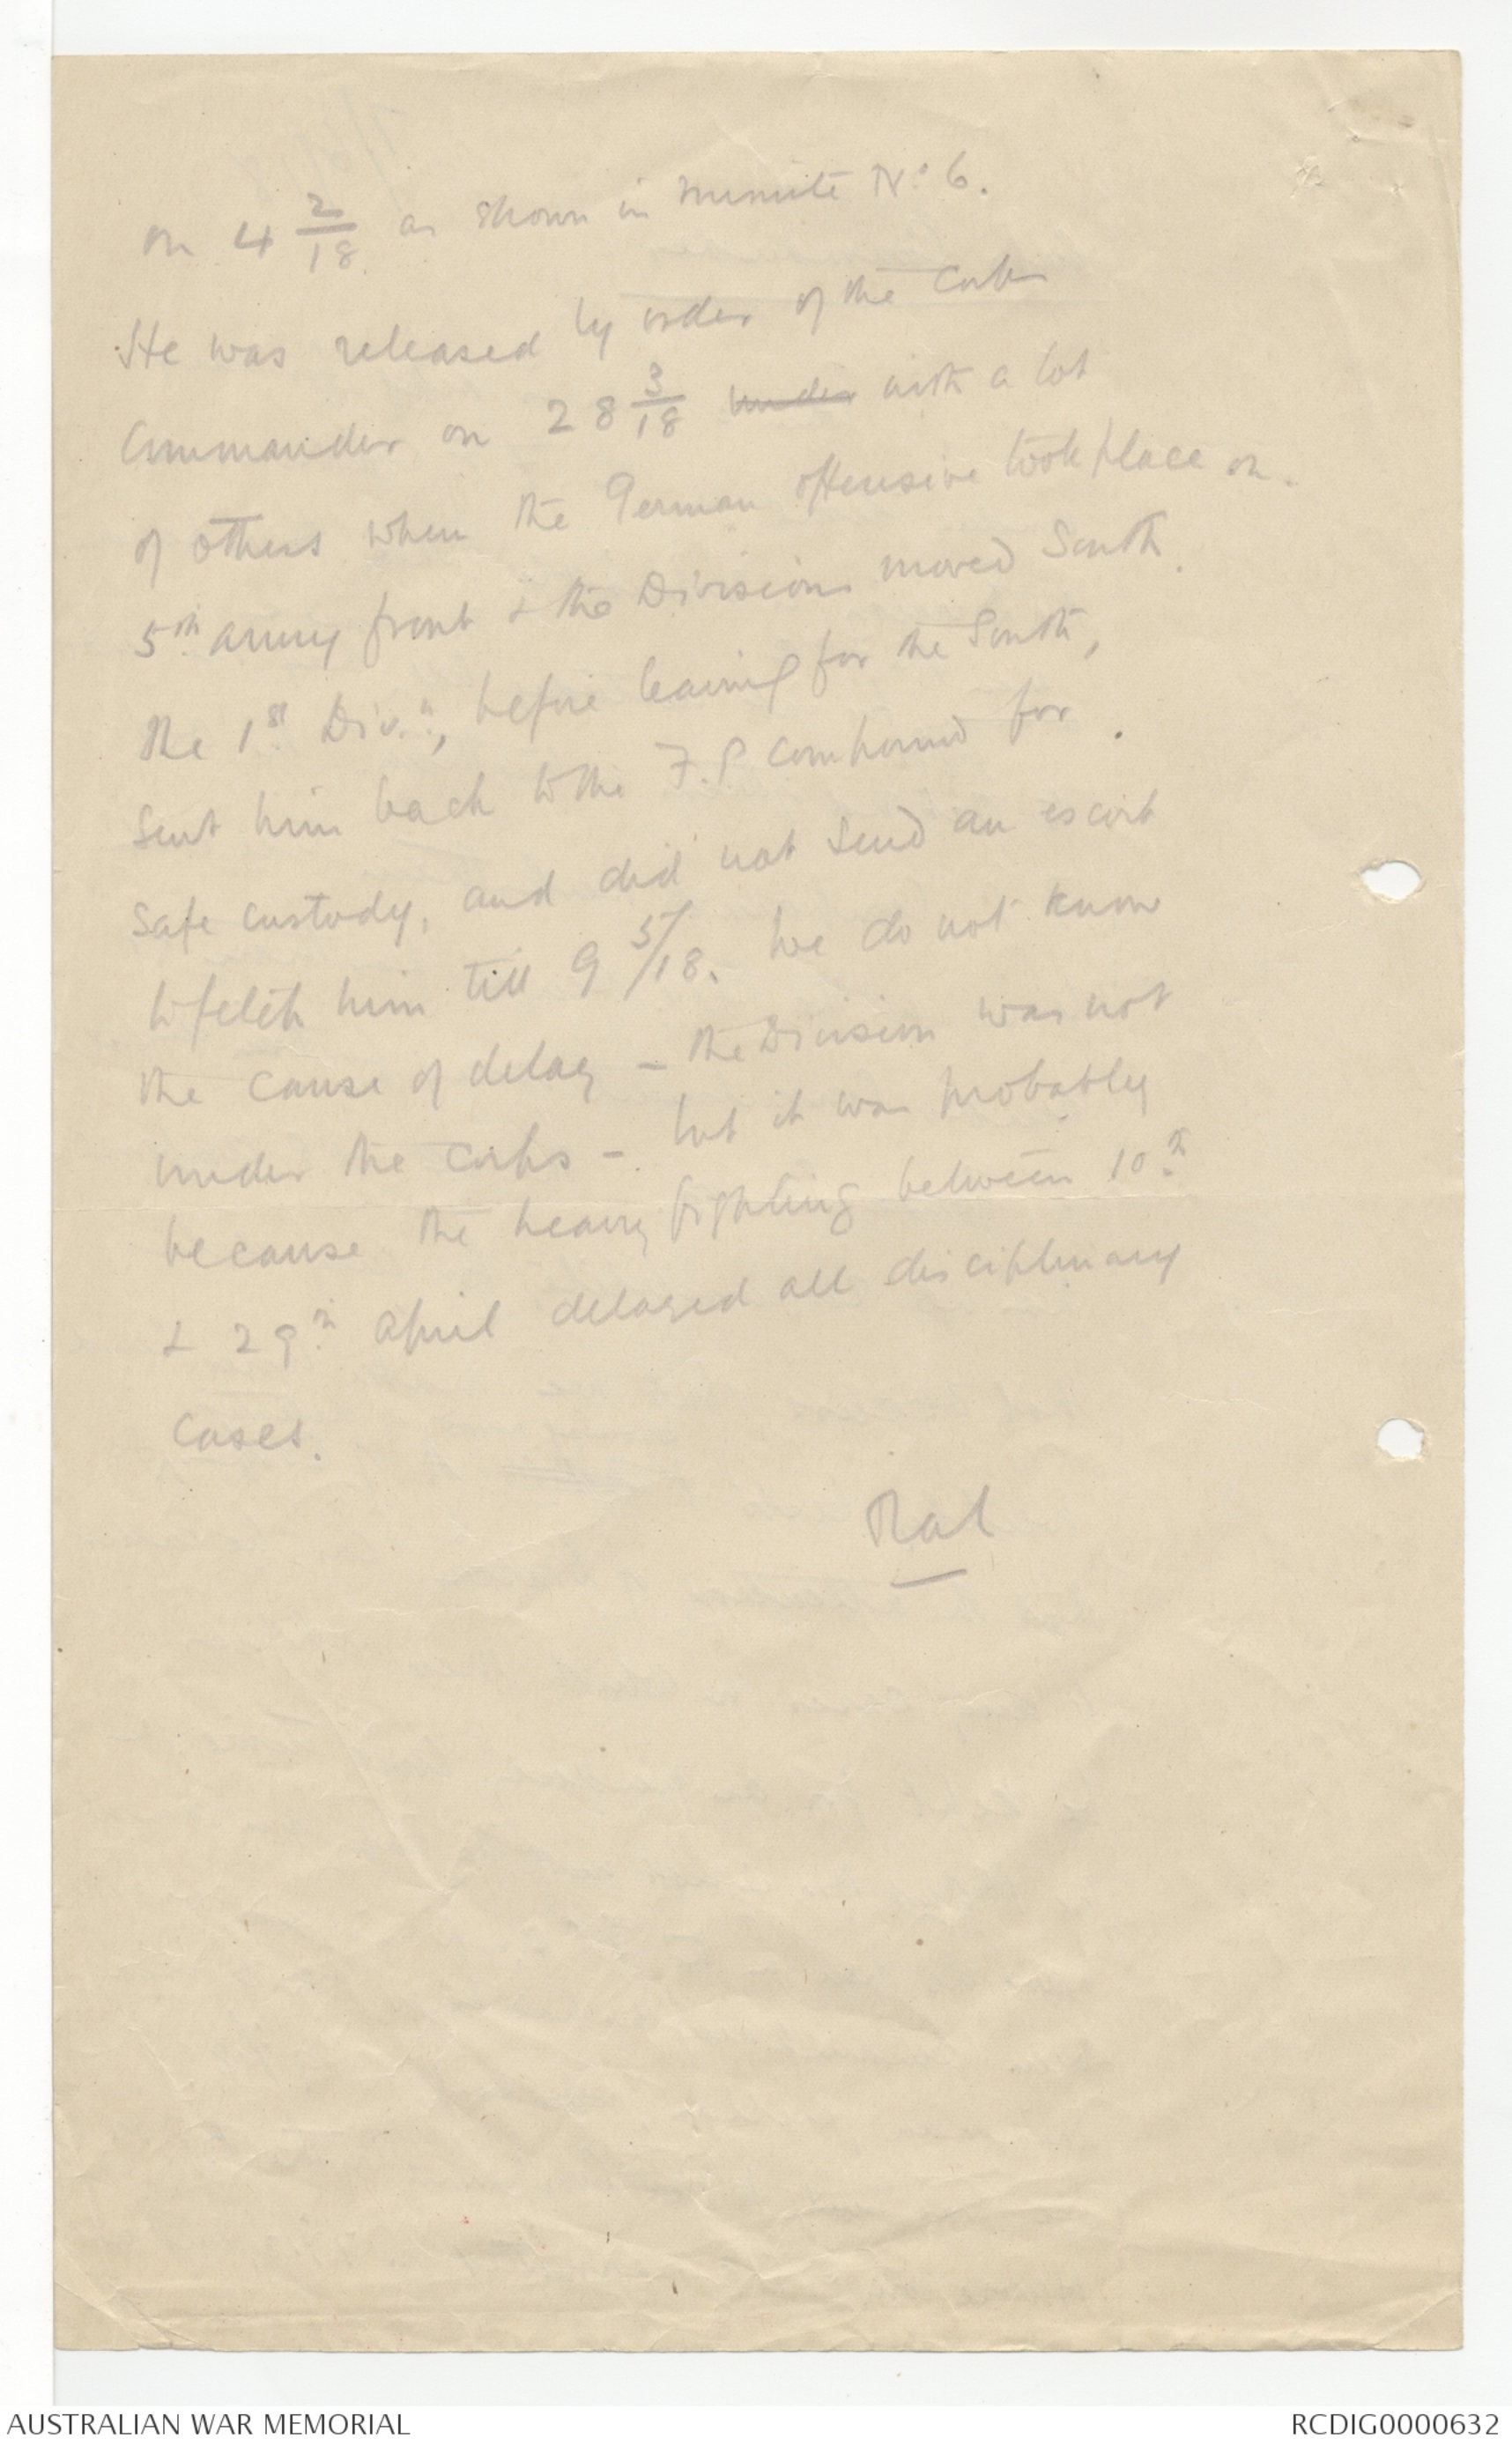 on 4 2/18 as shown in minute No. 6.
He was released by order of the Corps
Commander on 28 3/18 under with a lot
of others when the German offensive took place on
5th army front & the Divisions moved South.
The 1st Div.n, before leaving for the South,
sent him back to the F.P compound for
safe custody, and did not send an escort
to fetch him till 9 5/18. We do not know
the cause of delay – the Division was not
under the Corps – but it was probably
because the heavy fighting between 10th
& 29th April delayed all disciplinary
cases.
AUSTRALIAN WAR MEMORIAL
RCDIG0000632